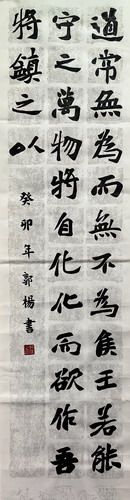 道常無為而無不為侯王若能
守之萬物將自化化而欲作吾
將鎮之以
癸卯年郭楊書